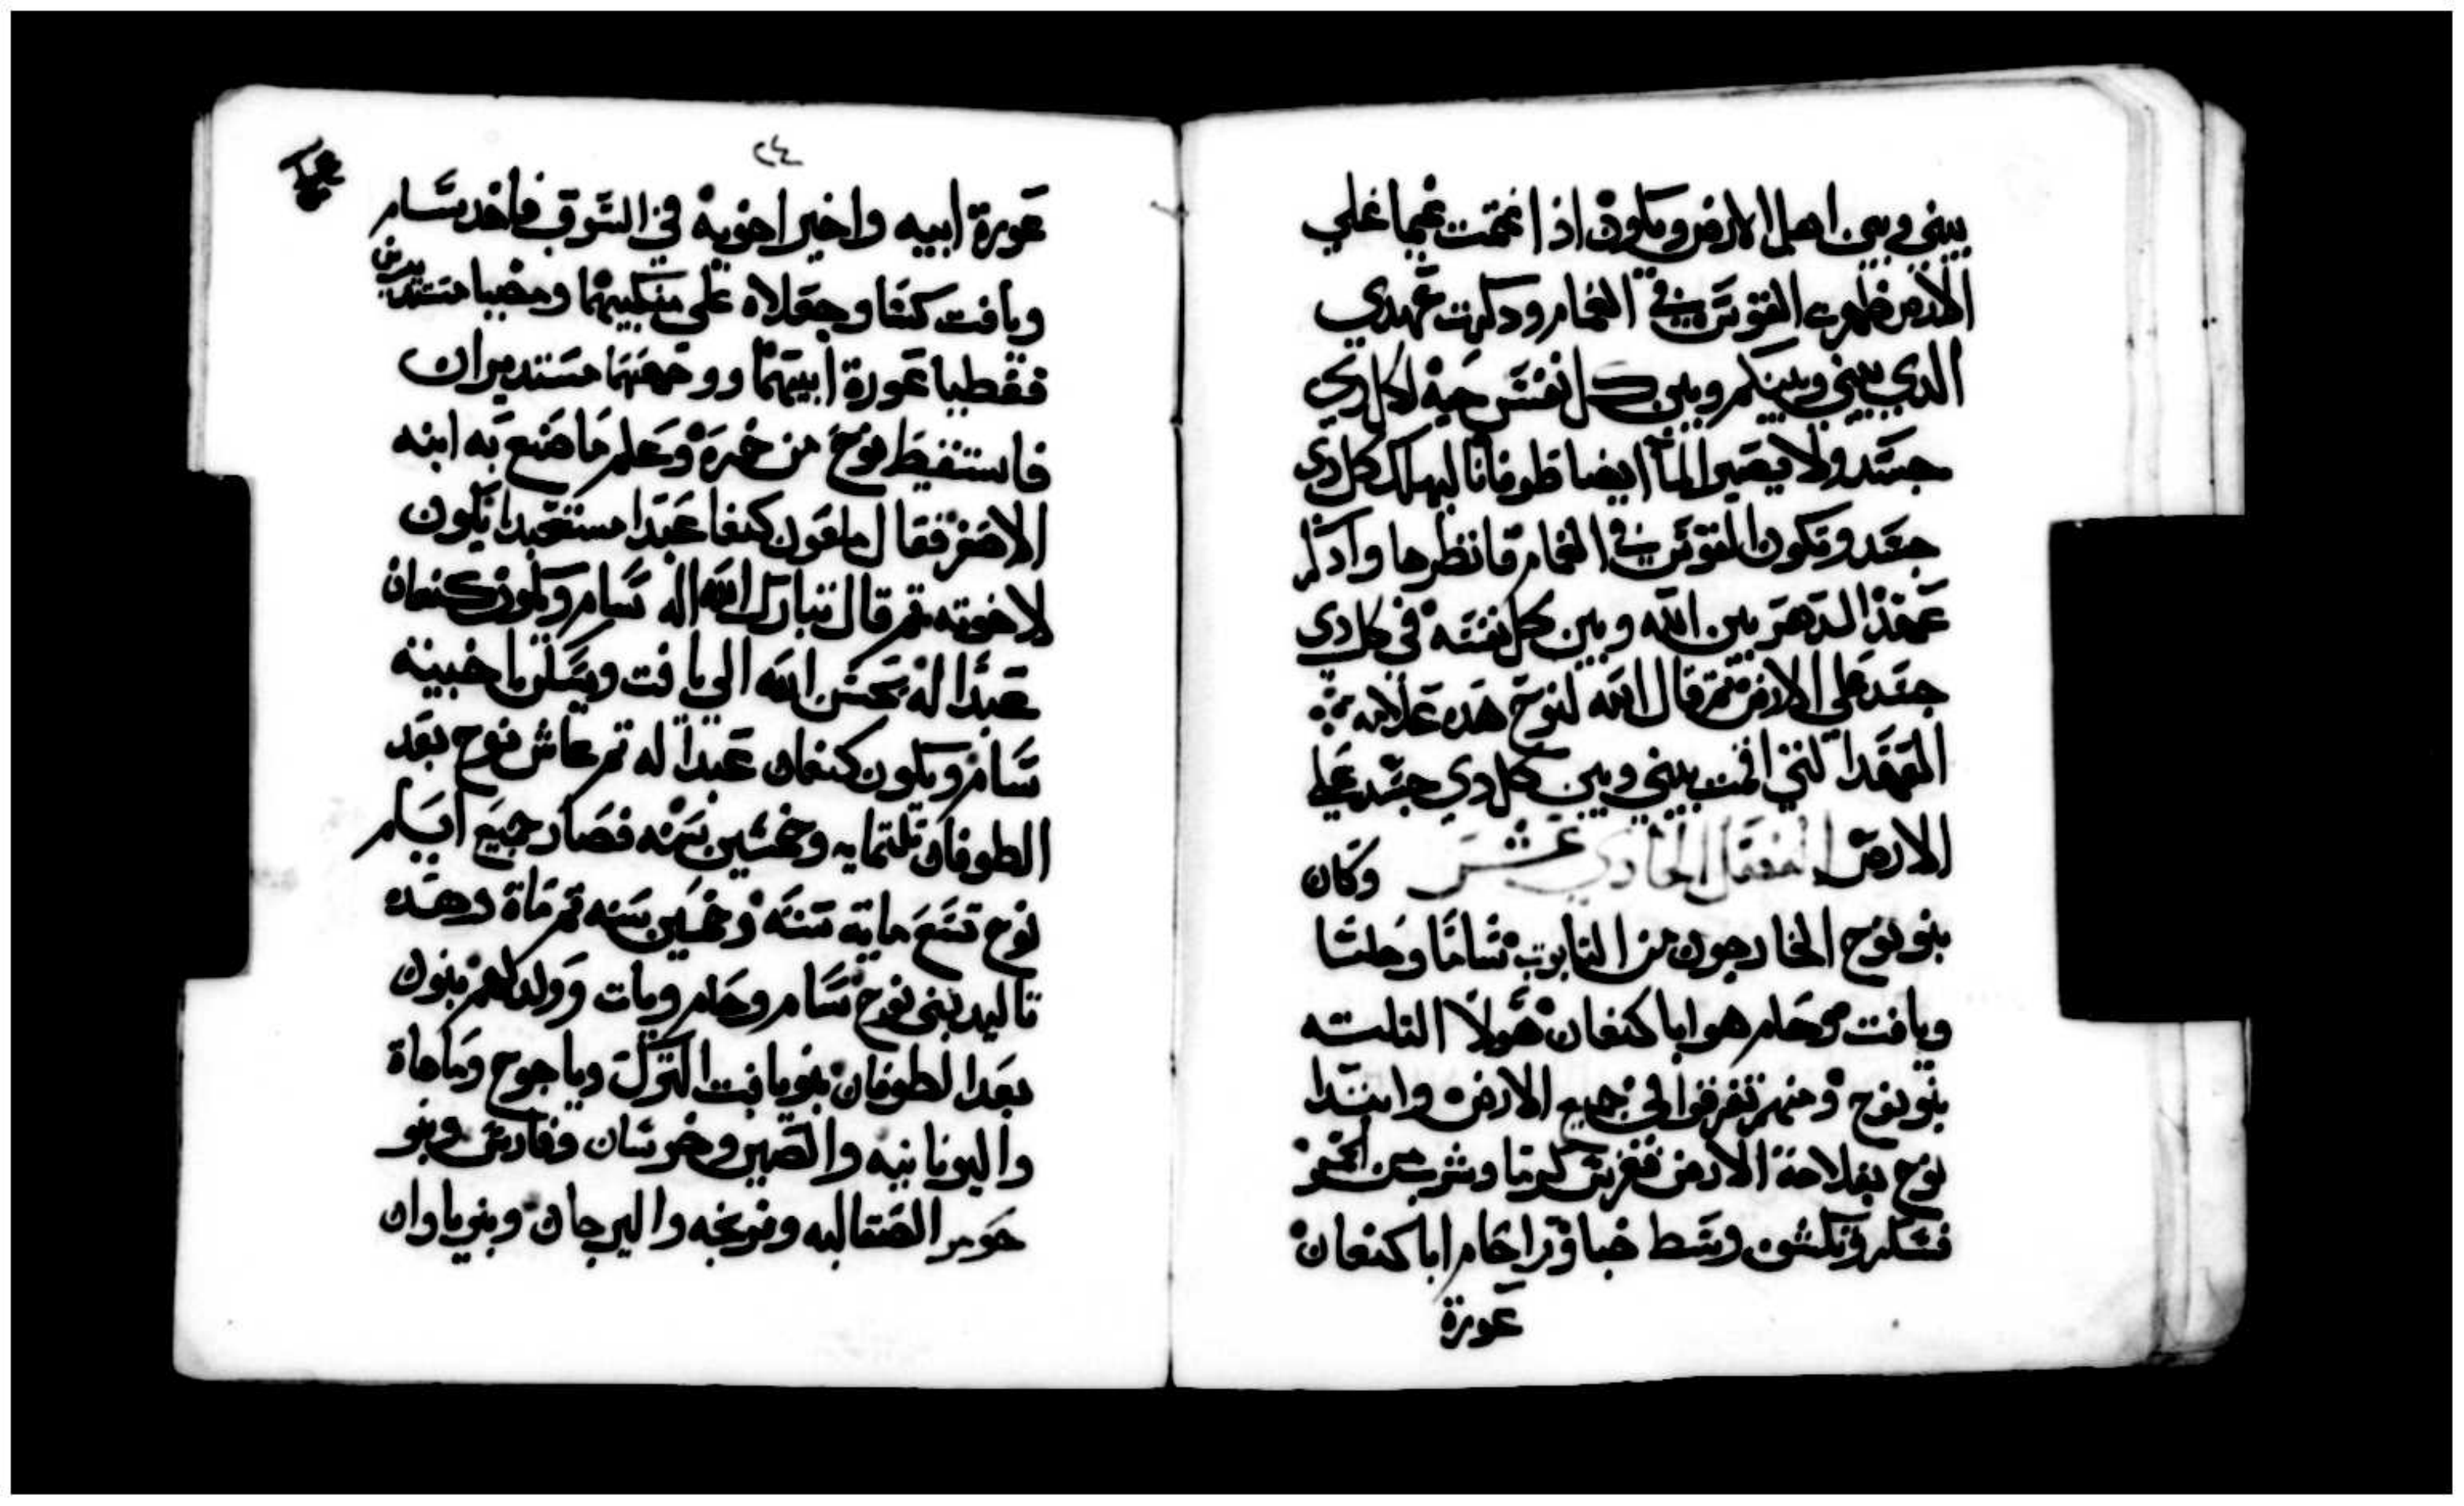 بيني وبين اهل الارض ويكون اذا غممت غيما علي
الارض ظهرت القوس في الغمام ودكرت عهدي
الدي بيني وبينكم وبين كل نفس حية لكل دي
جسد ولا يصير الماا ايضا طوفانا ليهلك كل دي
جسد وتكون القوس في الغمام فانظرها وادكر
عهد الدهر بين الله وبين كل نفسه في كل دي
جسد علي الارض تم قال الله لنوح هده علامه
العهد التي اقمت بيني وبين كل دي جسد علي
الارض الفصل الحادي عشر وكان
بنو نوح الخارجون من التابوت ساما وحاما
ويافت وحام هو ابا كنعان هولا التلته
بنو نوح ومنهم تفرقوا في جميع الارض وابتدا
نوح بفلاحة الارض فغرس كرما وشرب من الخمر
فسكر وتكشف وسط خبا وراا حام ابا كنعان
عورة
٢٤
عورة ابيه واخبر اخويه في السوق فاخد سام
ويافت كسا وجعلاه علي منكبيهما ومضيا مستديرين
فغطيا عورة ابيهما ووجههما مستديران
فاستيقظ نوح من خمره وعلم ما صنع به ابنه
الاصغر فقال ملعون كنعان عبدا مستعبدا يكون
لاخوته تم قال تبارك الله اله سام ويكون كنعان
عبدا له يحسن الله الي يافت ويسكن اخبيته
سام ويكون كنعان عبدا له تم عاش نوح بعد
الطوفان تلتمايه وخمسين سنه فصار جميع ايام
نوح تسع مايه سنه وخمسين سنه تم مات وهده
تاليد بني نوح سام وحام ويافت وولد لهم بنون
بعد الطوفان بنو يافت الترك وياجوج وماجاة
واليونانيه والصين وخرسان وفارس وبنو
جومر الصقالبه وفرنجه والبرجان وبنو ياوان